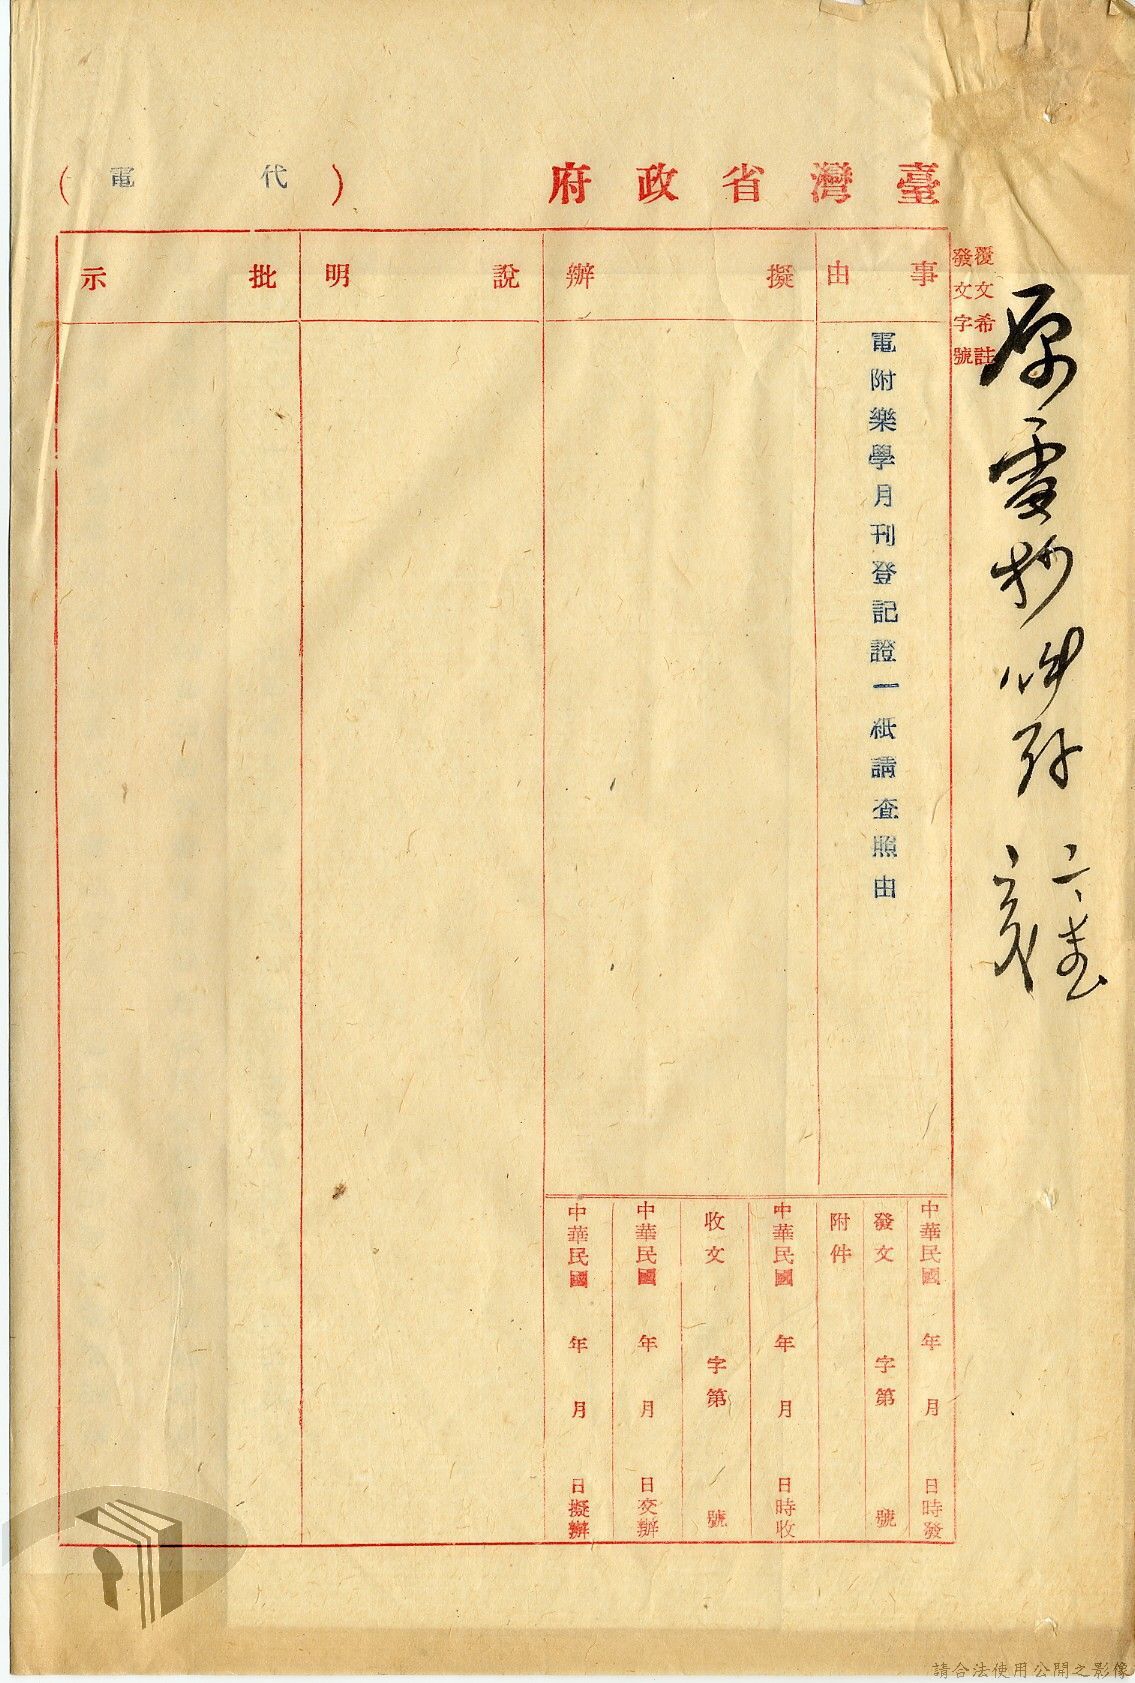 臺灣省政府(代電)
覆文希註
發文字號
事由
電附樂學月刊登記證一紙請查照由
擬辦
說明
批示
中華民國 年 月 日時發
發文 字第 號
附件
中華民國 年 月 日時收
收文 字第 號
中華民國 年 月 日交辦
中華民國 年 月 日擬辦
原電抄件存
請合法使用公開之影像